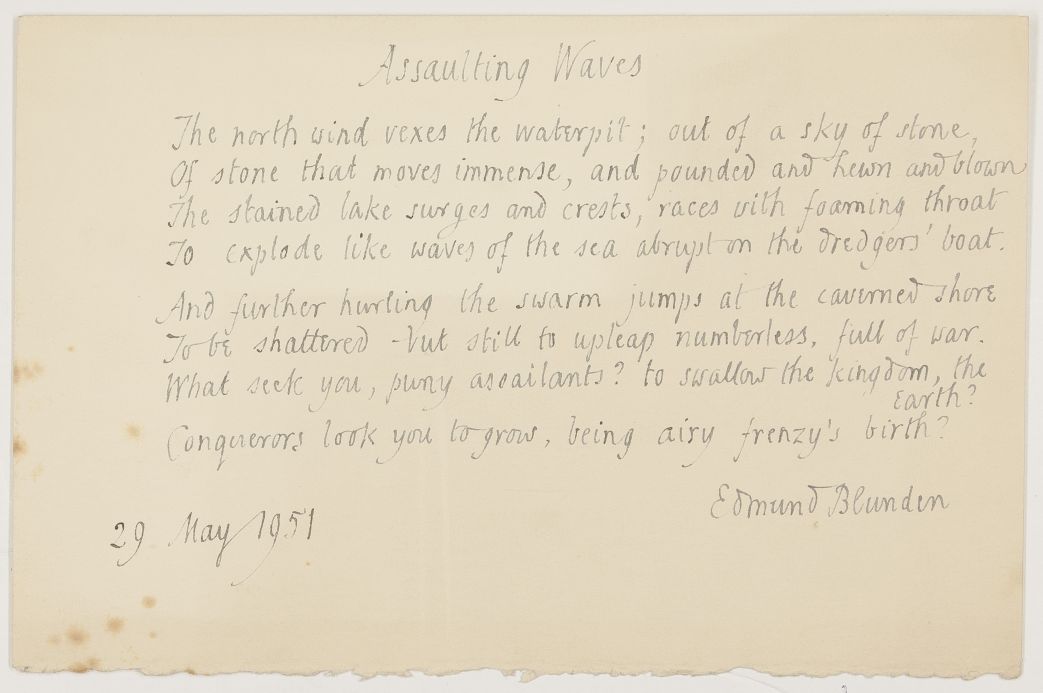 Assaulting Waves
The north wind vexes the waterpit; out of a sky of stone,
Of stone that moves immense, and pounded and hewn and blown
The stained lake surges and crests, races with foaming throat
To explode like waves of the sea abrupt on the dredgers' boat.
And further hurling the swarm jumps at the caverned shore
To be shattered - but still to upleap numberless, full of war.
What seek you, puny assailants? to swallow the kingdom, the
Earth?
Conquerors look you to grow, being airy frenzy's birth?
Edmund Blunden
29 May 1951